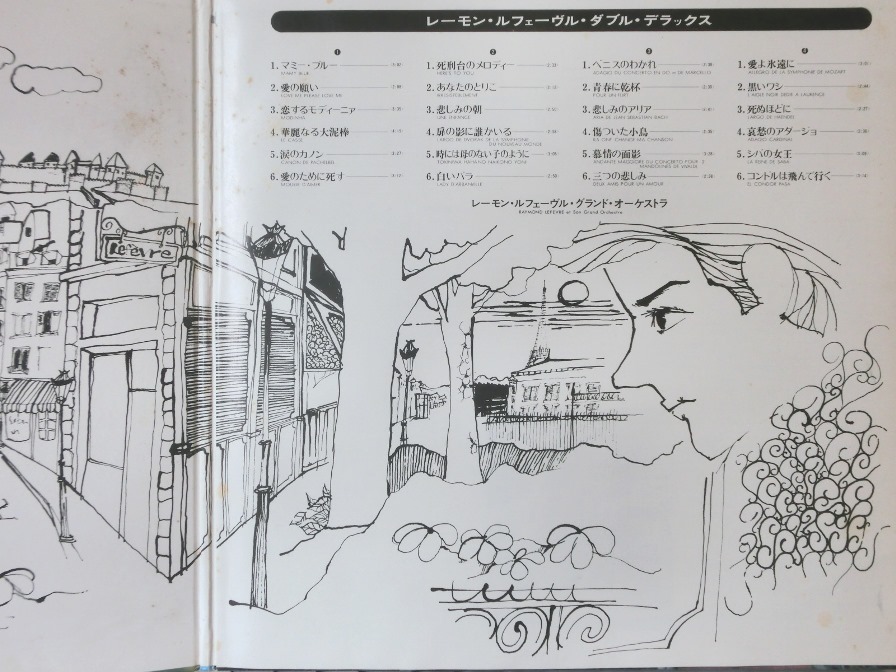 レーモン・ルフェーヴル・ダブル・デラックス
1
1.マミー・ブルー
MAMY BLUE
2.愛の願い
3.恋するモディーニァ
MODINHA
4.華麗なる大泥棒
LE CASSE
5.涙のカノン
CANON DE PACHELBEL
6.愛のために死す
MOURIR D'AIMER
2
1.死刑台のメロディー
HERE'S TO YOU
2.あなたのとりこ
IRRESISTIBLEMENT
3.悲しみの朝
UNE ENFANCE
4.扉の影に誰かいる
5.時には母のない子のように
6.白いバラ
LADY D'ARBANVILLE
3
1.ベニスのわかれ
2.青春に乾杯
POUR UN FLIRT
3.悲しみのアリア
ARIA DE JEAN SEBASTIEN BACH
4.傷ついた小鳥
5.慕情の面影
6.三つの悲しみ
DEUX AMIS POUR UN AMOUR
4
1.愛よ永遠に
ALLEGRO DE LA SYMPHONIE DE MOZART
2.黒いワシ
3.死ぬほどに
LARGO DE HAENDEL
4.哀愁のアダージョ
ADAGIO CARDINAL
5.シバの女王
LA REINE DE SABA
6.コンドルは飛んで行く
EL CONDOR PASA
レーモン・ルフェーヴル・グランド・オーケストラ
RAYMOND LEFEVRE et Son Grand Orchestre
Lefevre